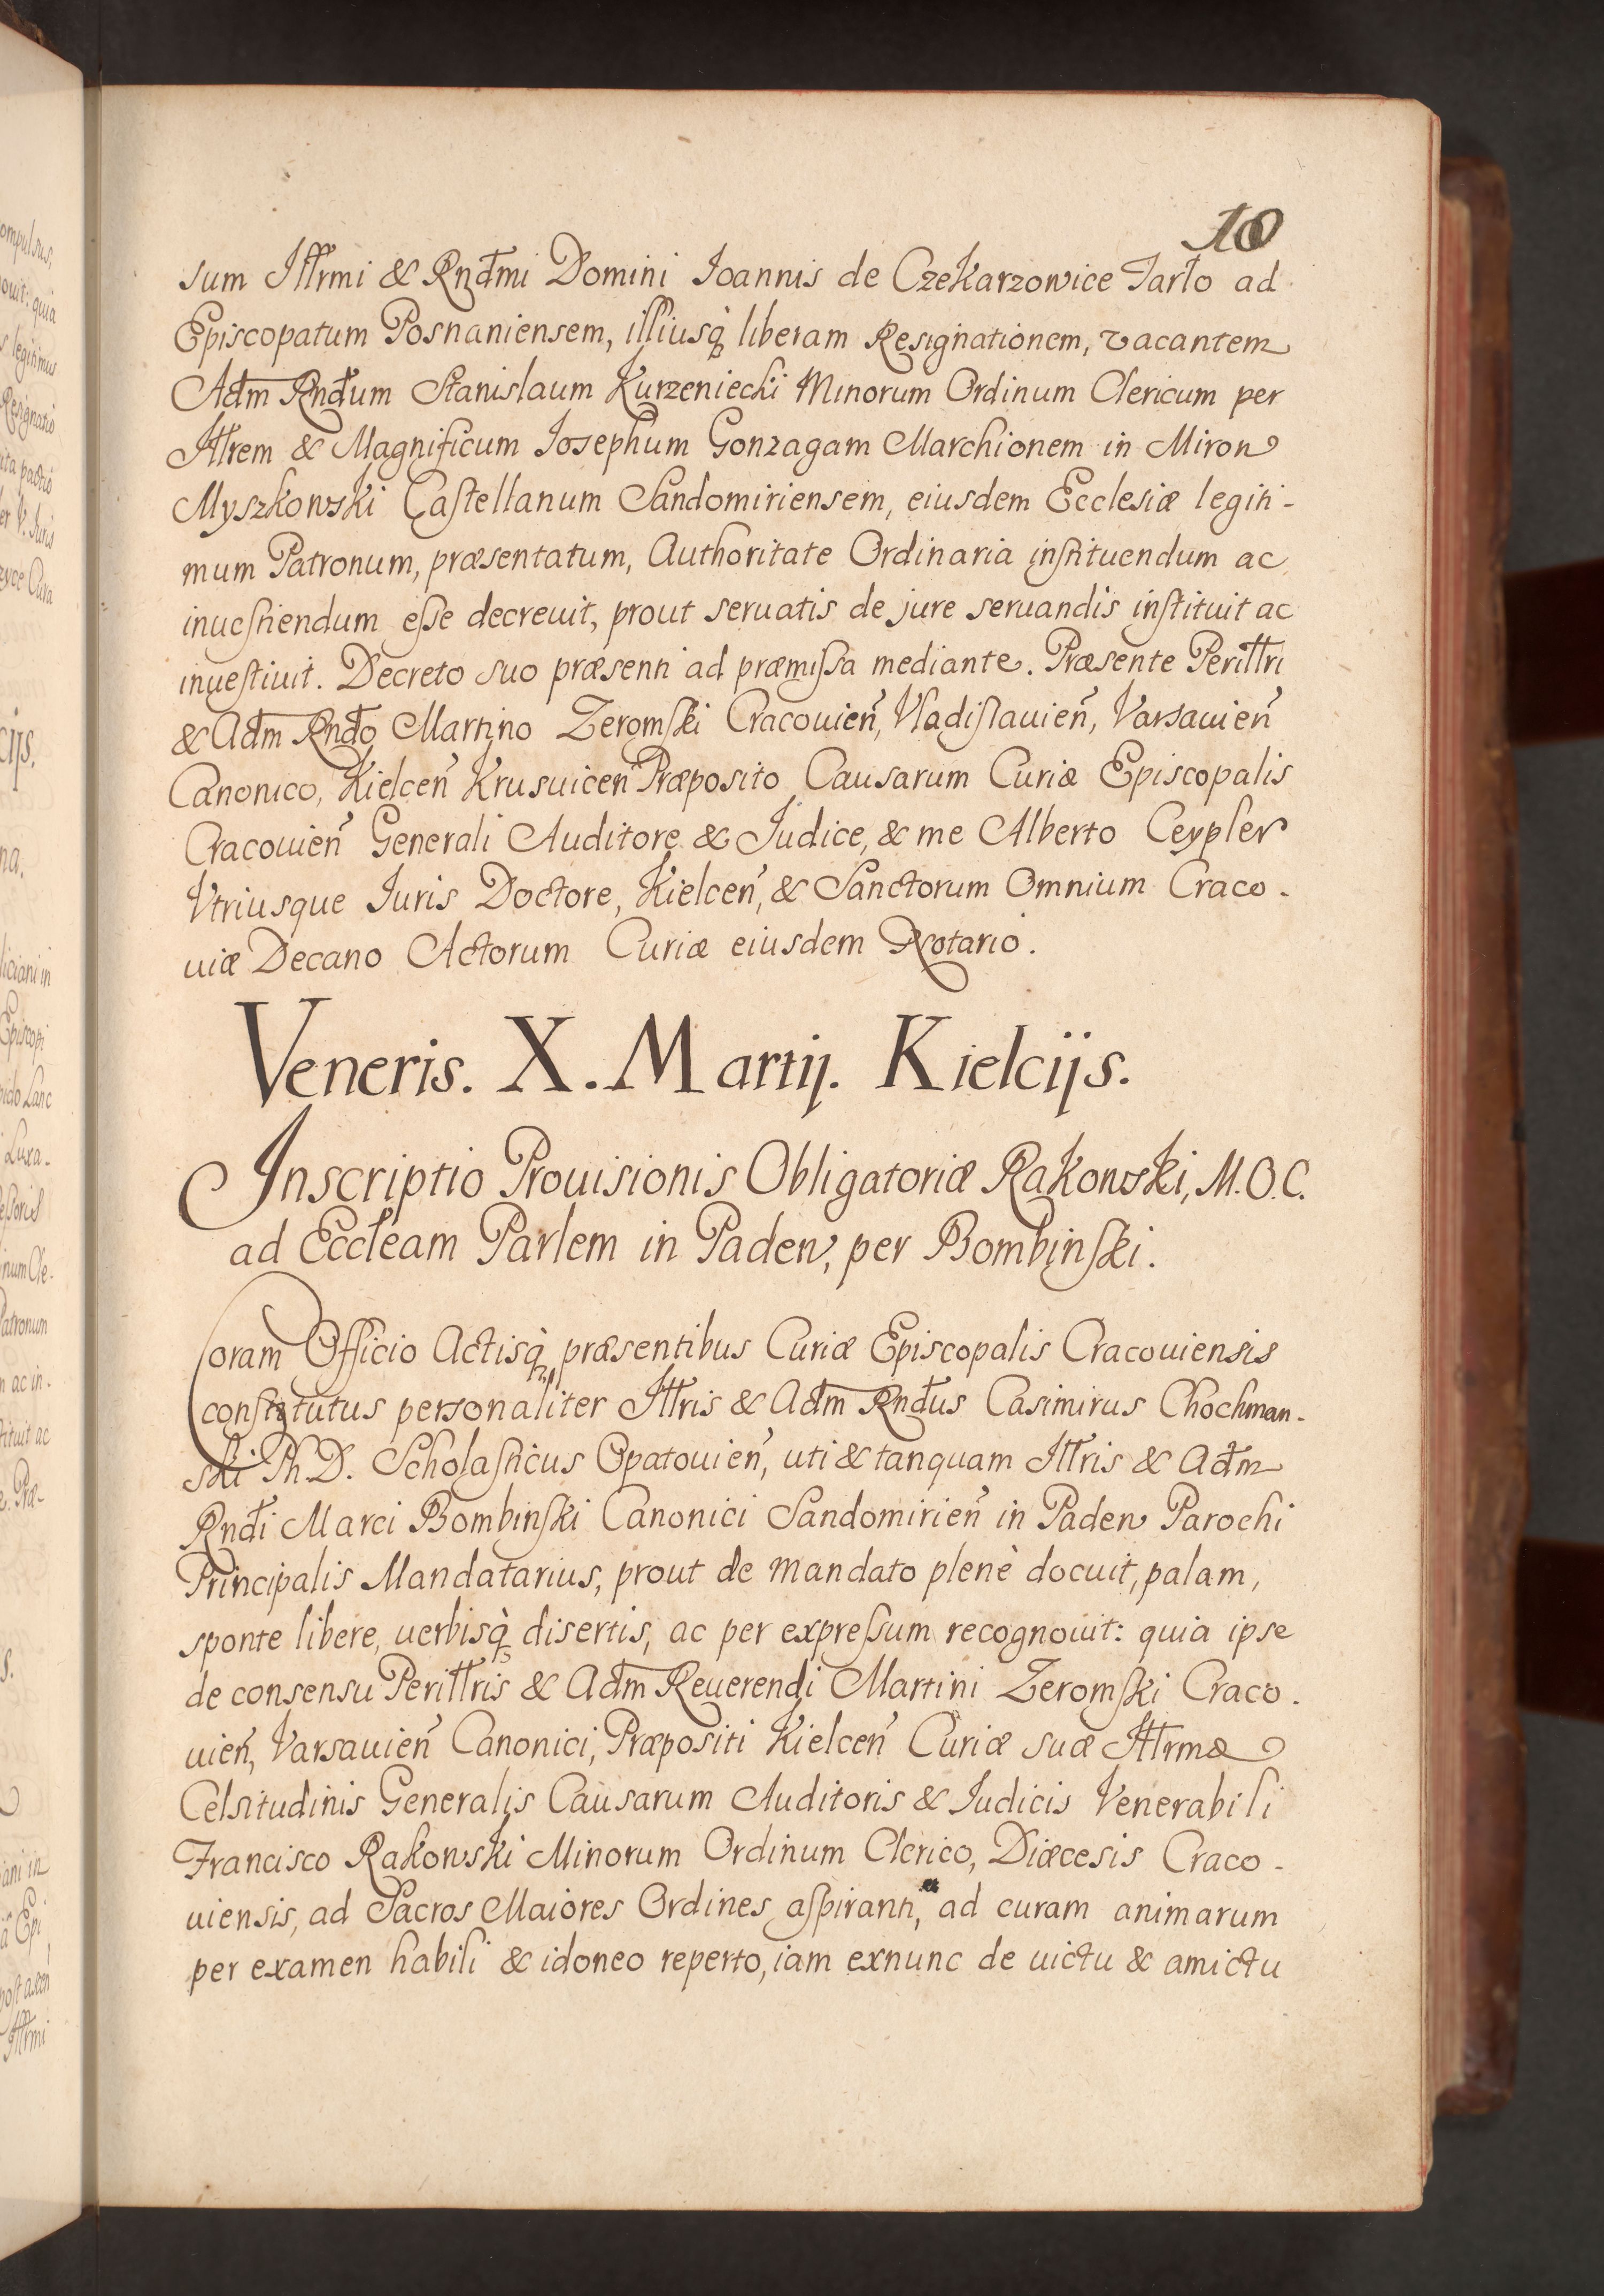 10
sum Illrmi & Rndmi Domini Ioannis de CzeKarzowice Tarło ad
Episcopatum Posnaniensem, illiusq̀ liberam Resignationem, vacantem
Adm Rndum Stanislaum Kurzeniecki Minorum Ordinum Clericum per
Illrem & Magnificum Iosephum Gonzagam Marchionem in Mirow
MyszkowsKi Castellanum Sandomiriensem, eiusdem Ecclesiæ legiti-
mum Patronum, præsentatum, Authoritate Ordinaria instituendum ac
inuestiendum esse decreuit, prout seruatis de jure seruandis instituit ac
inuestiuit. Decreto suo præsenti ad præmissa mediante. Præsente Perillri
& Adm Rndo Martino Zeromski Cracouien̄, Vladislauien̄, Varsauien̄
Canonico, Kielcen̄ Krusuicen̄ Præposito Causarum Curiæ Episcopalis
Cracouien̄ Generali Auditore & Judice, & me Alberto Ceypler
Vtriusque Iuris Doctore, Kielcen̄, & Sanctorum Omnium Craco-
uiæ Decano Actorum Curiæ eiusdem Notario.
Veneris. X. Martij. Kielcijs.
Inscriptio Prouisionis Obligatoriæ RakowsKi, M.O.C.
ad Eccleam Parlem in Padew, per Bombinski.
Coram Officio Actisq̀ præsentibus Curiæ Episcopalis Cracouiensis
constitutus personaliter Illris & Adm Rndus Casimirus Chochman-
ski Ph.D. Scholasticus Opatouien̄, uti & tanquam Illris & Adm
Rndi Marci Bombinski Canonici Sandomirien̄ in Padew Parochi
Principalis Mandatarius, prout de mandato plenè docuit, palam,
sponte libere, uerbisq̀ disertis, ac per expressum recognouit: quia ipse
de consensu Perillris & Adm Reuerendi Martini Zeromski Craco-
uien̄, Varsauien̄ Canonici, Præpositi Kielcen̄ Curiæ suæ Illrmæ
Celsitudinis Generalis Causarum Auditoris & Iudicis Venerabili
Francisco RakowsKi Minorum Ordinum Clerico, Diæcesis Craco-
uiensis, ad Sacros Maiores Ordines aspiranti, et ad curam animarum
per examen habili & idoneo reperto, iam exnunc de uictu & amictu